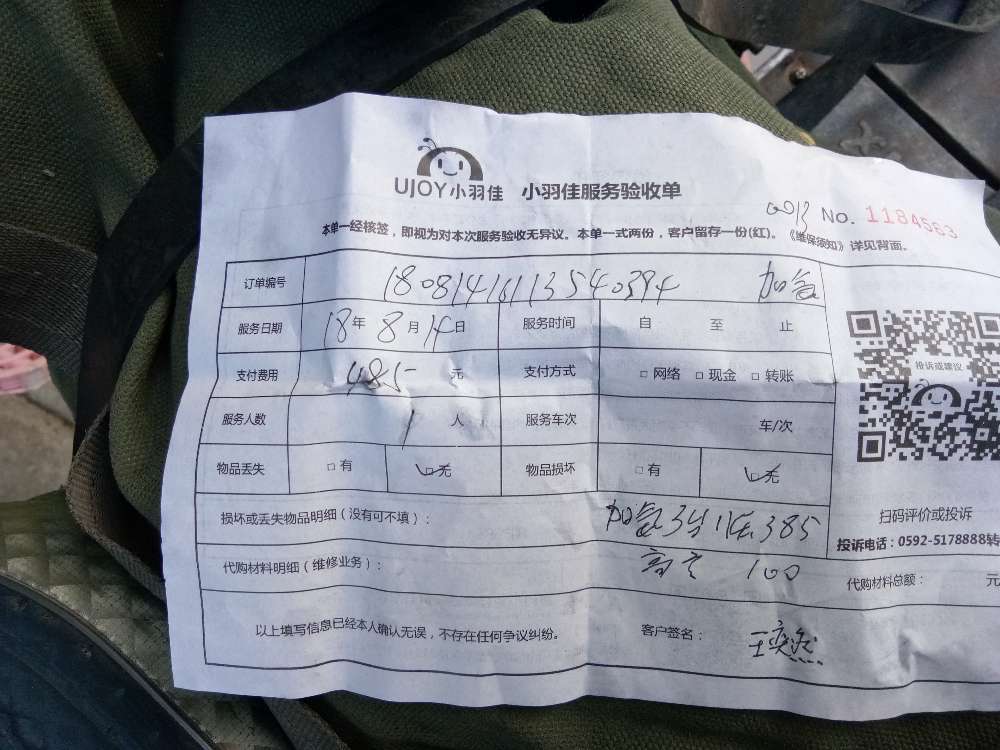 UJOY小羽佳 小羽佳服务验收单
No. 1184563
本单一经核签，即视为对本次服务验收无异议。本单一式两份，客户留存一份(红)。《维保须知》详见背面。
订单编号 18081416113540394 加氨
服务日期 18年 8月 14日 服务时间 自 至 止
支付费用 485 元 支付方式 □ 网络 □ 现金 □ 转账
服务人数 1 人 服务车次 车/次
物品丢失 □ 有 ☑ 无 物品损坏 □ 有 ☑ 无
投诉或建议
扫码评价或投诉
投诉电话：0592-5178888转
损坏或丢失物品明细（没有可不填）： 385
代购材料明细（维修业务）： 100 代购材料总额： 元
以上填写信息已经本人确认无误，不存在任何争议纠纷。 客户签名：